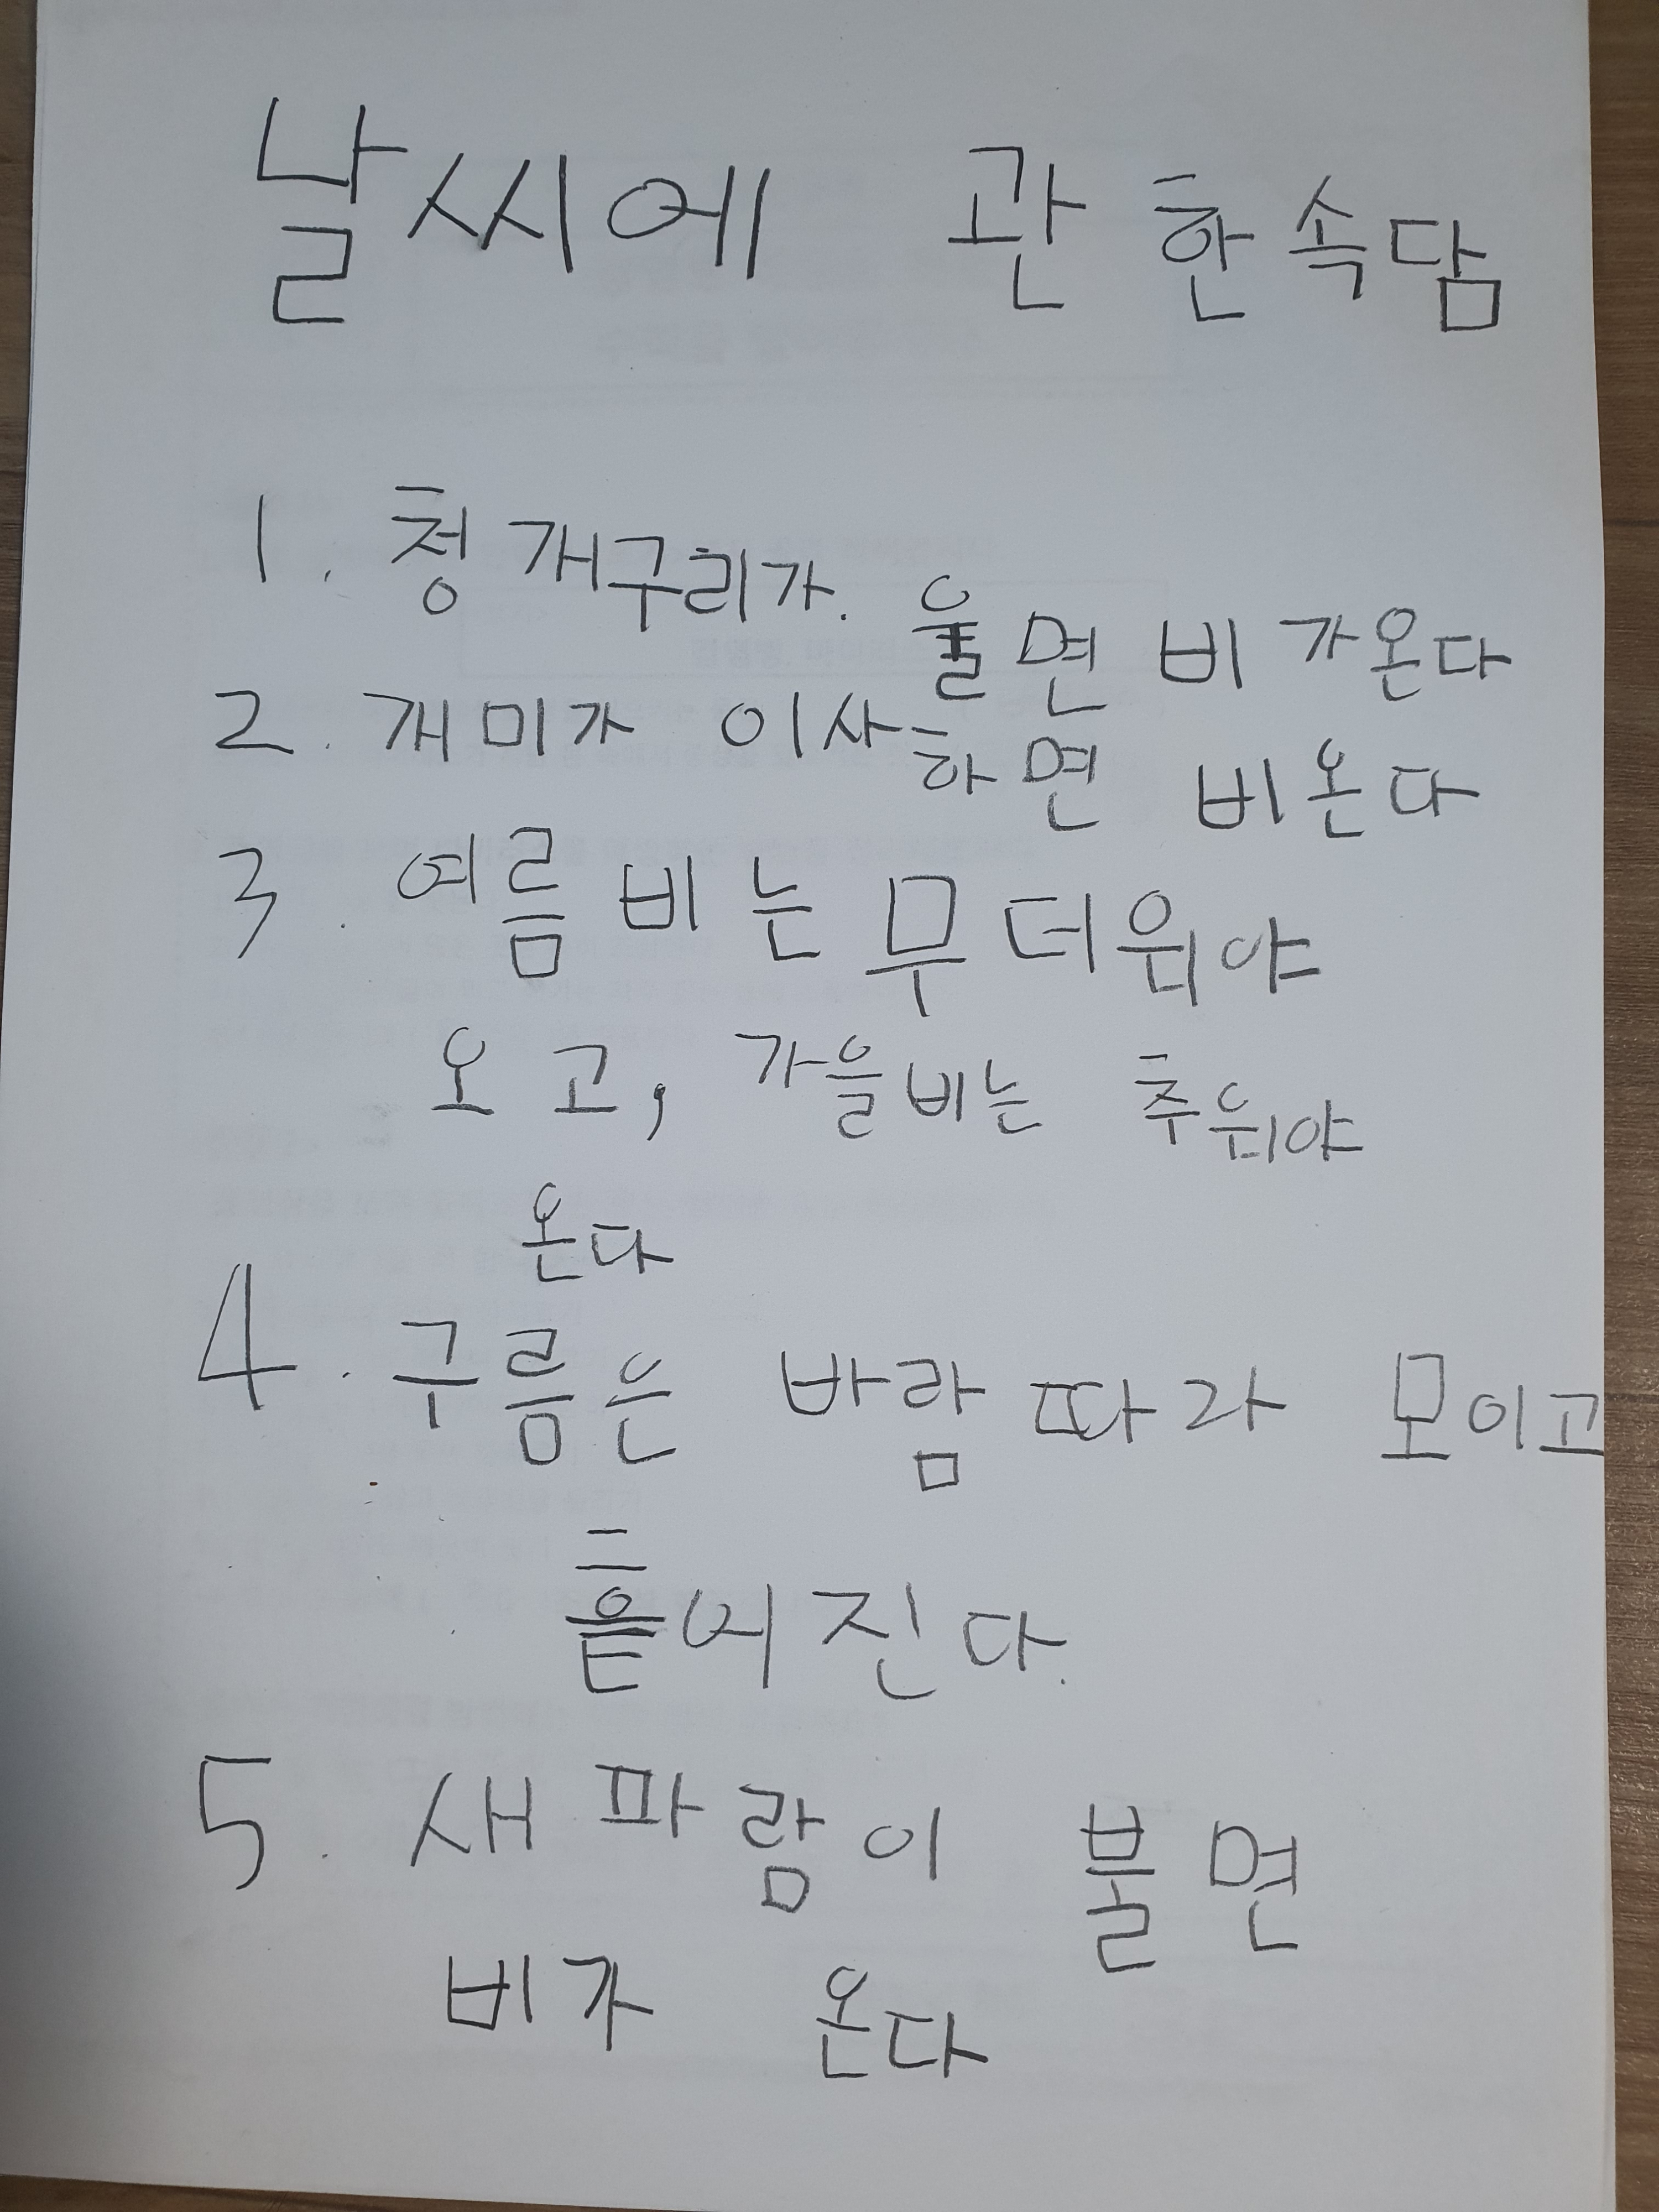 날씨에 관한 속담
1. 청개구리가. 울면 비가온다
2. 개미가 이사하면 비온다
3. 여름비는 무더위야
오고, 가을비는 추위야
온다
4. 구름은 바람따라 모이고
흩어진다.
5. 새파람이 불면
비가 온다